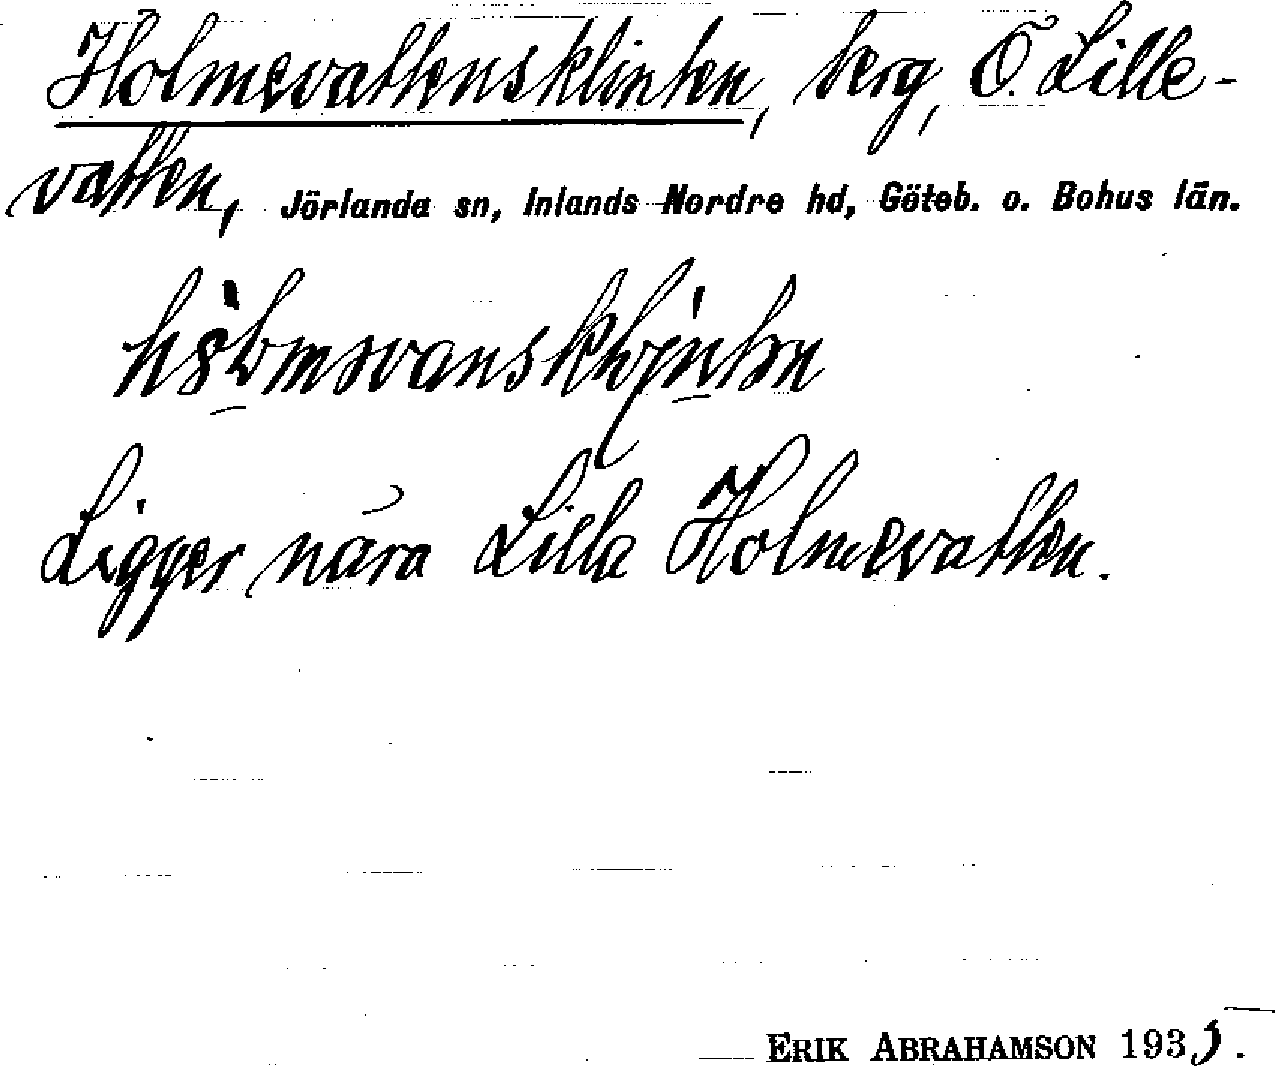 Holmevattensklinten, berg, Ö. Lille-
vatten, Jörlanda sn, Inlands Nordre hd, Göteb. o. Bohus län.
Ligger nära Lilla Holmevatten.
ERIK ABRAHAMSON 1935.